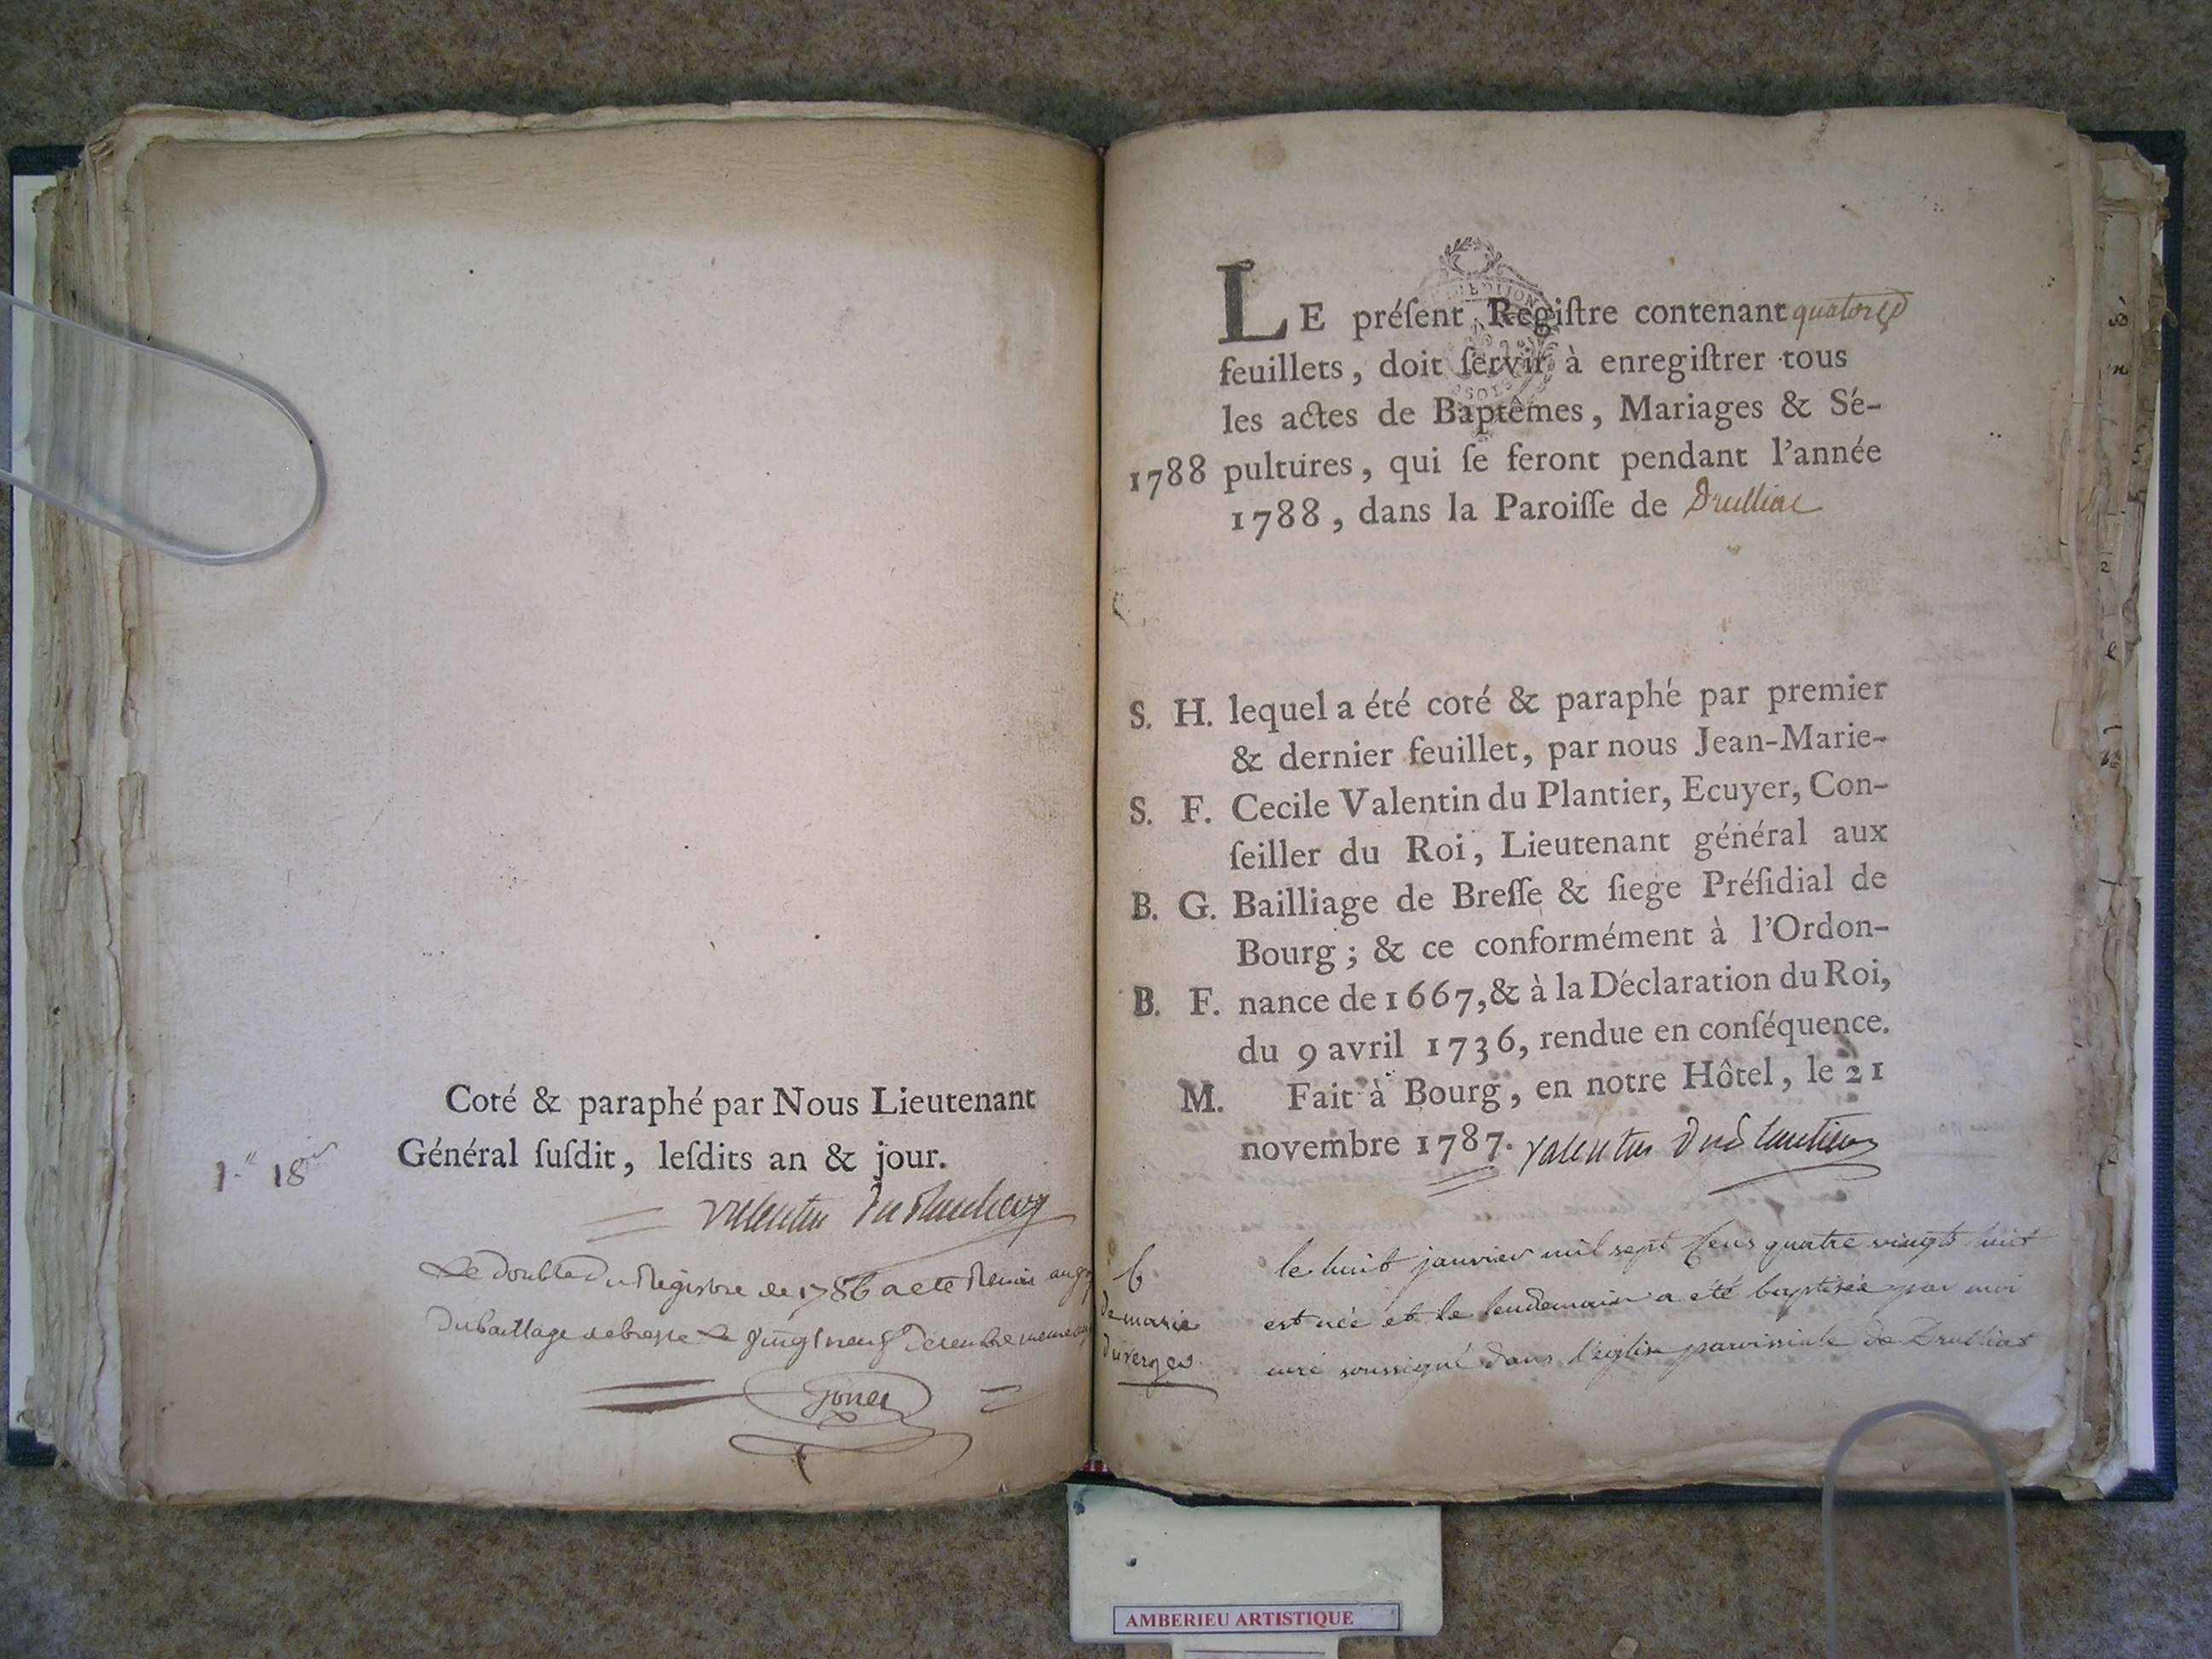 Coté & paraphé par Nous Lieutenant
Général ſuſdit, leſdits an & jour.
1. 18
valentin du plantier
Le double du Registre de 1786 a eté Remis au
du baillage de bresse Le vingt neuf decembre meme
LE préſent Regiſtre contenant quatorze
feuillets, doit ſervir à enregiſtrer tous
les actes de Baptêmes, Mariages & Sé-
1788 pultures, qui ſe feront pendant l'année
1788, dans la Paroiſſe de Drulliat
S. H. lequel a été coté & paraphé par premier
& dernier feuillet, par nous Jean-Marie-
S. F. Cecile Valentin du Plantier, Ecuyer, Con-
ſeiller du Roi, Lieutenant général aux
B. G. Bailliage de Breſſe & ſiege Préſidial de
Bourg ; & ce conformément à l'Ordon-
B. F. nance de 1667, & à la Déclaration du Roi,
du 9 avril 1736, rendue en conſéquence.
M. Fait à Bourg, en notre Hôtel, le 21
novembre 1787. valentin du plantier
b
de marie
duverger
le huit janvier mil sept cens quatre vingts huit
est née et le lendemain a été baptisée par moi
curé soussigné dans l'église paroissiale de Drulliat
AMBERIEU ARTISTIQUE